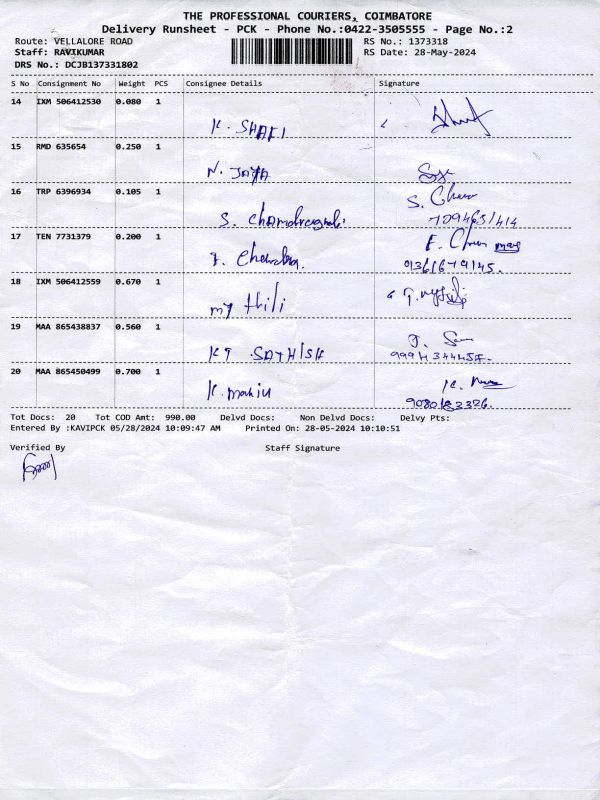 THE PROFESSIONAL COURIERS, COIMBATORE
Delivery Runsheet - PCK - Phone No.:0422-3505555 - Page No.:2
Route: VELLALORE ROAD RS No.: 1373318
Staff: RAVIKUMAR RS Date: 28-May-2024
DRS No.: DCJB137331802
S No Consignment No Weight PCS Consignee Details Signature
14 IXM 506412530 0.080 1
K. SHAFI
15 RMD 635654 0.250 1
N. JAYA
16 TRP 6396934 0.105 1
S.
S.
17 TEN 7731379 0.200 1
18 IXM 506412559 0.670 1
my thili
19 MAA 865438837 0.560 1
KT SATHISH
20 MAA 865450499 0.700 1
K.
K.
Tot Docs: 20 Tot COD Amt: 990.00 Delvd Docs: Non Delvd Docs: Delvy Pts:
Entered By :KAVIPCK 05/28/2024 10:09:47 AM Printed On: 28-05-2024 10:10:51
Verified By Staff Signature